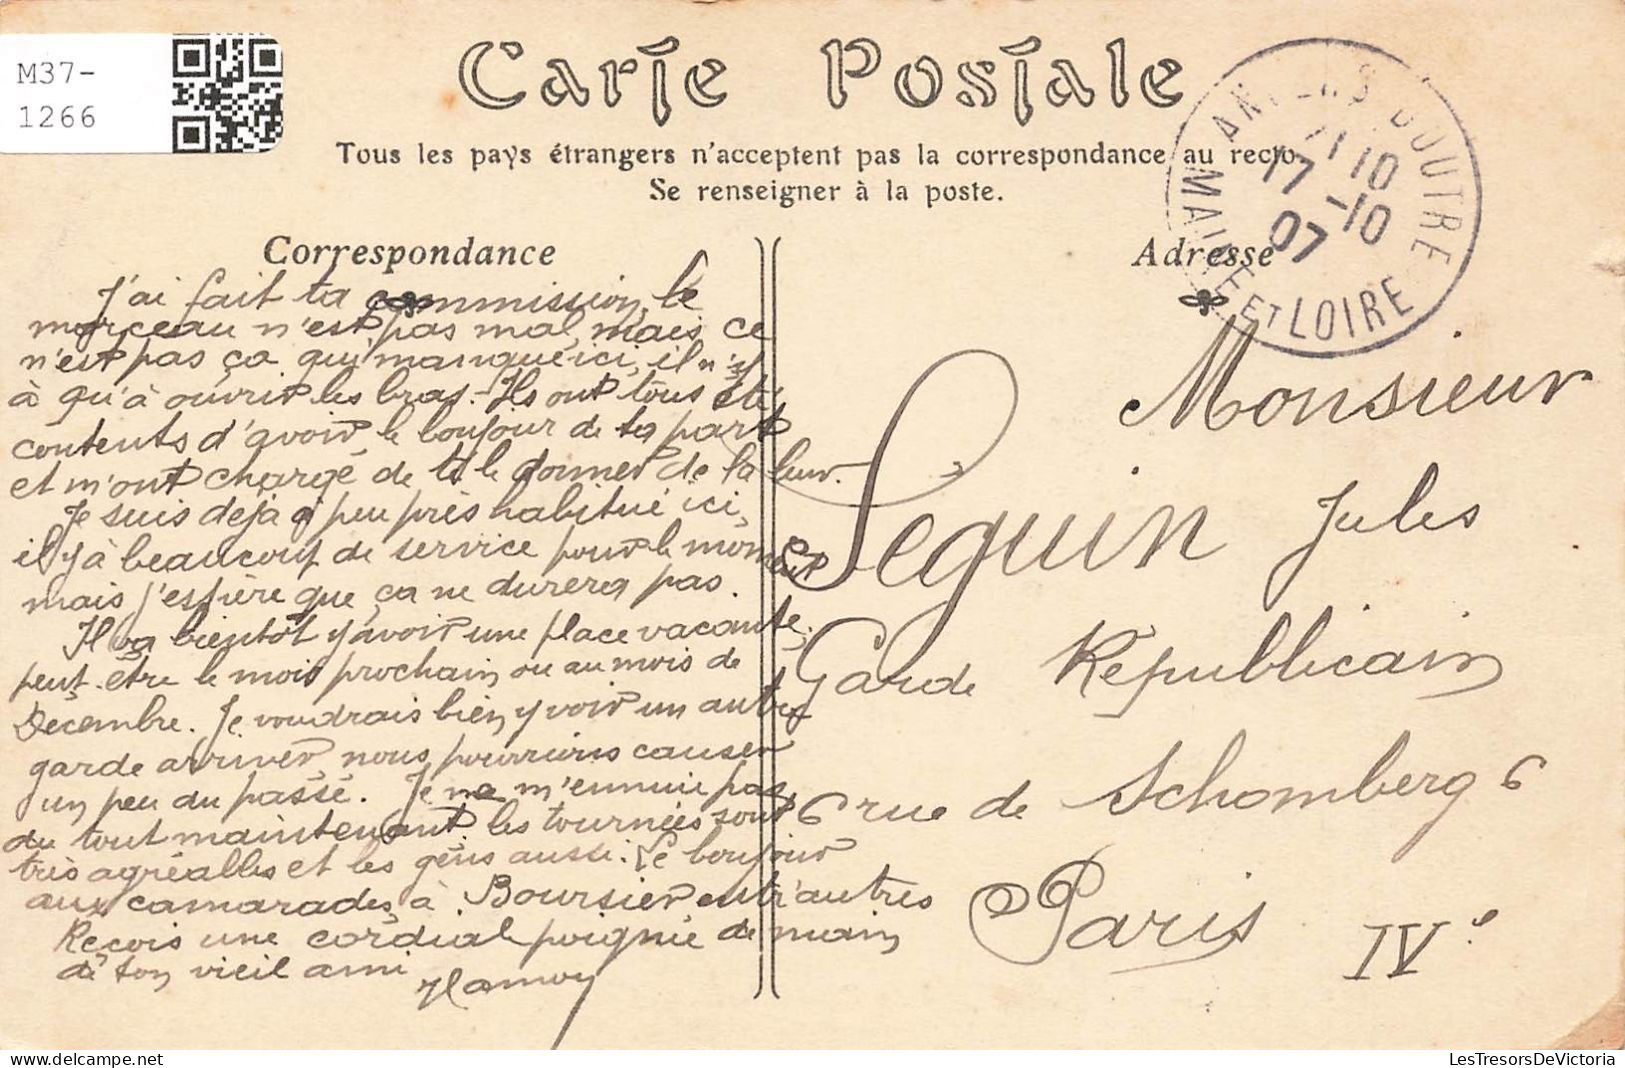 M37-
1266
Carte Postale
Tous les pays étrangers n'acceptent pas la correspondance au recto
Se renseigner à la poste.
ANGERS DOUTRE
11 10
17 -10
07
MAINE ET LOIRE
Correspondance
J'ai fait ta commission, le
morceau n'est pas mal, mais ce
n'est pas ça qui manque ici, il n'y
à qu'à ouvrir les bras. Ils ont tous été
contents d'avoir le bonjour de ta part
et m'ont chargé de te le donner de la leur.
Je suis déjà à peu près habitué ici,
il y à beaucoup de service pour le moment
mais j'espère que ça ne durera pas.
Il va bientôt y avoir une place vacante,
peut-être le mois prochain ou au mois de
Décembre. Je voudrais bien y voir un autre
garde arriver nous pourrions causer
un peu du passé. Je ne m'ennuie pas
du tout maintenant, les tournées sont
très agréables et les gens aussi. Le bonjour
aux camarades, à Boursier entr'autres
Reçois une cordial poignée de main
de ton vieil ami
Hamon
Adresse
Monsieur
Seguin Jules
Garde Républicain
6 rue de Schomberg 6
Paris IVe
LesTresorsDeVictoria